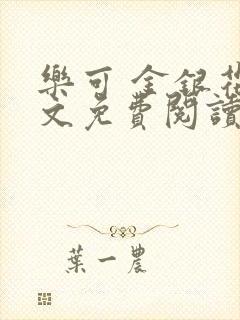 樂可 金銀花
文免費閱讀
葉一農